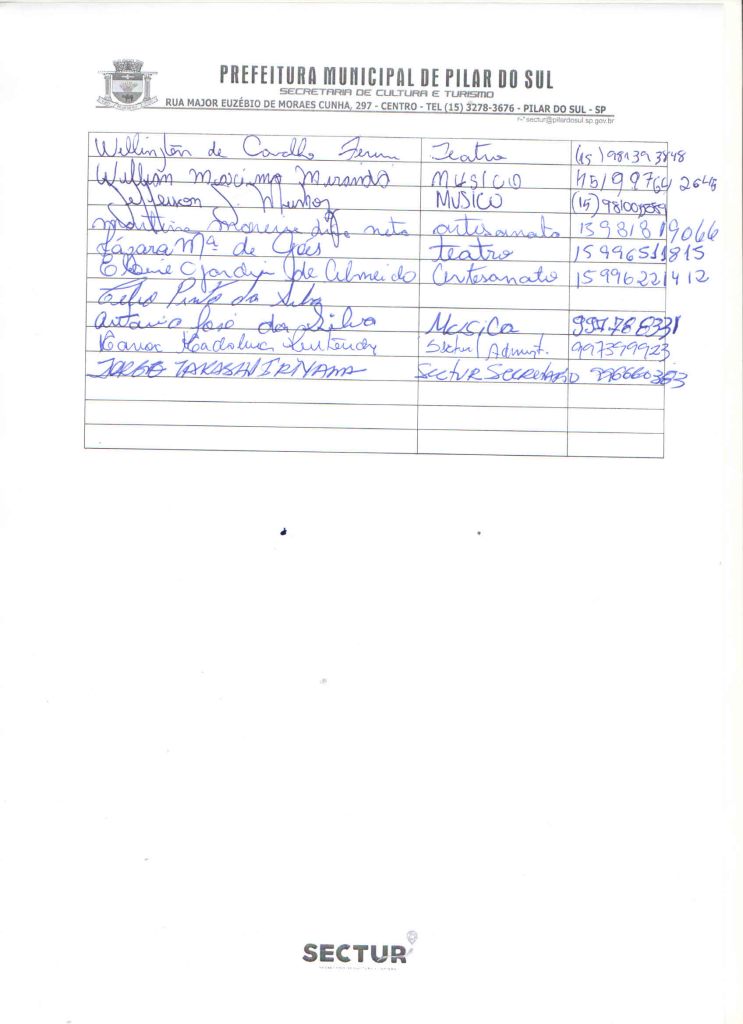 PREFEITURA MUNICIPAL DE PILAR DO SUL
SECRETARIA DE CULTURA E TURISMO
RUA MAJOR EUZÉBIO DE MORAES CUNHA, 297 - CENTRO - TEL (15) 3278-3676 - PILAR DO SUL - SP
sectur@pilardosul.sp.gov.br
Wellington de Carvalho Teatro (15) 981393848
Willian Miranda MUSICO 15/99764 2645
Jefferson J. Munhoz MUSICO (15)
Moreira neta artesanato 15981819066
Lázara Mª de Góes teatro 15996511815
de Almeida Artesanato 15996221412
Célio Pinto da Silva
Antonio José da Silva Musica 99778 8331
Sectur/Admint. 997399923
JORGE TAKASHI IRIYAMA SECTUR SECRETARIO 996660363
SECTUR